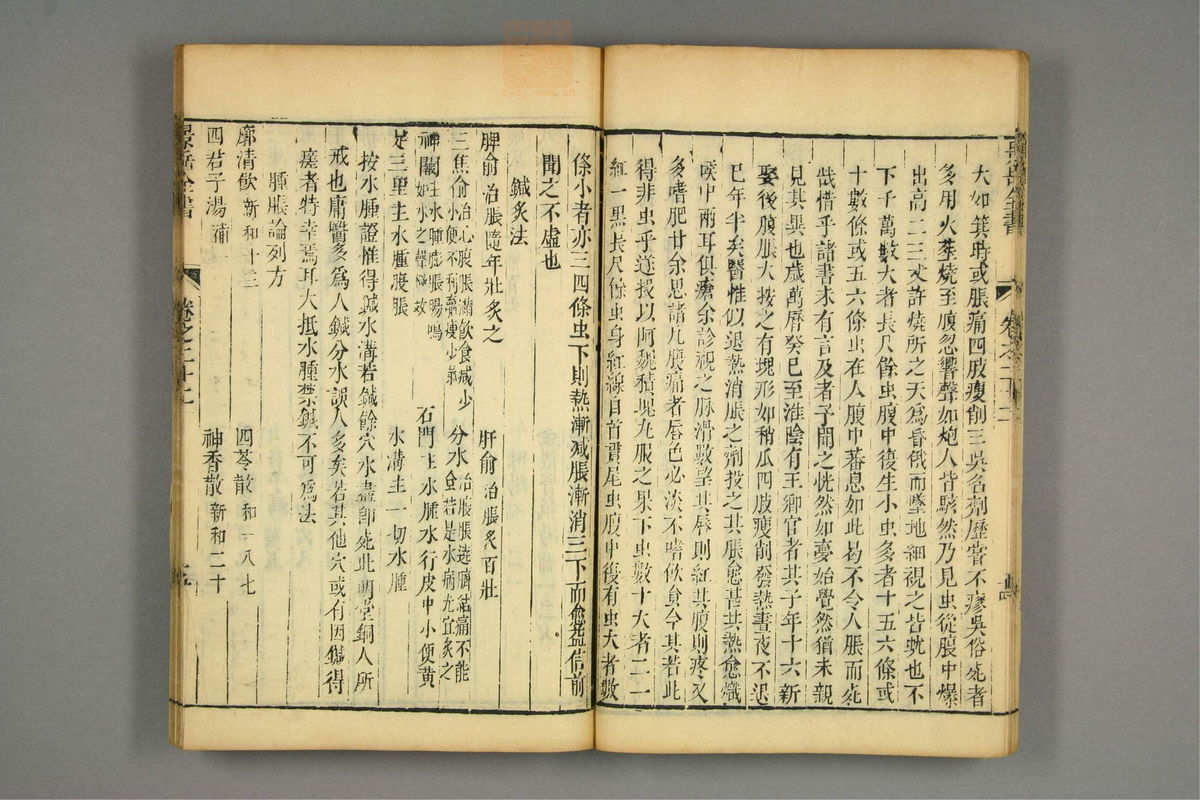 大如箕時或脹痛四肢瘦削三吳名劑歷嘗不瘳吳俗死者
多用火葬燒至腹忽響聲如炮人皆駭然乃見虫從腹中爆
出高二三丈許燒所之天為昏俄而墜地細視之皆蚘也不
下千萬數大者長尺餘虫腹中復生小虫多者十五六條或
十數條或五六條虫在人腹中蕃息如此曷不令人脹而死
哉惜乎諸書未有言及者予聞之恍然如夢始覺然猶未親
見其異也歲萬曆癸巳至淮陰有王鄉官者其子年十六新
娶後腹脹大按之有塊形如稍瓜四肢瘦削發熱晝夜不退
已年半矣醫惟以退熱消脹之劑投之其脹愈甚其熱愈熾
喉中兩耳俱瘡余診視之脉滑數望其唇則紅其腹則疼又
多嗜肥甘余思諸凡腹痛者唇色必淡不嗜飲食今其若此
得非虫乎遂投以阿魏積塊丸服之果下虫數十大者二一
紅一黑長尺餘虫身紅線自首貫尾虫腹中復有虫大者數
條小者亦三四條虫下則熱漸減脹漸消三下而愈益信前
聞之不虛也
鍼灸法
脾俞 治脹隨年壯灸之 肝俞 治脹灸百壯
三焦俞 治心腹脹滿飲食減少小便不利羸瘦少氣 分水 治腹脹遶臍結痛不能食若是水病尤宜灸之
神闕 主水腫膨脹腸鳴如水之聲極效 石門 主水腫水行皮中小便黄
足三里 主水腫腹脹 水溝 主一切水腫
按水腫證惟得鍼水溝若鍼餘穴水盡即死此明堂銅人所
戒也庸醫多為人鍼分水誤人多矣若其他穴或有因鍼得
瘥者特幸焉耳大抵水腫禁鍼不可為法
腫脹論列方
廓清飲 新和十三 四苓散 和一八七
四君子湯 補一 神香散 新和二十